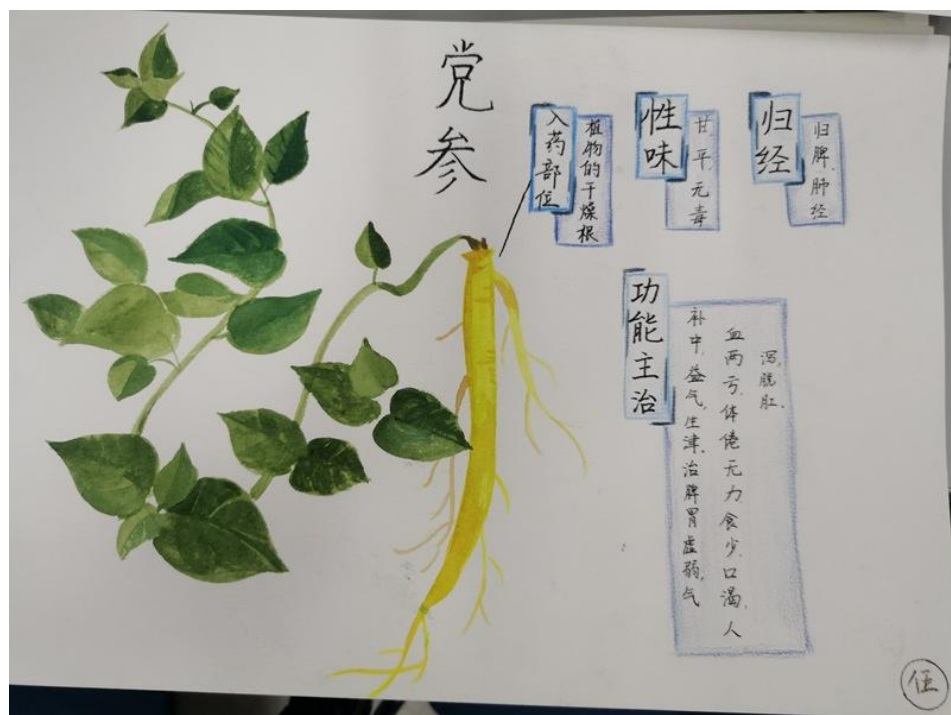 党参
入药部位
植物的干燥根
性味
甘,平,无毒
归经
归脾,肺经
功能主治
补中,益气,生津.治脾胃虚弱,气
血两亏,体倦无力食少,口渴,人
泻,脱肛.